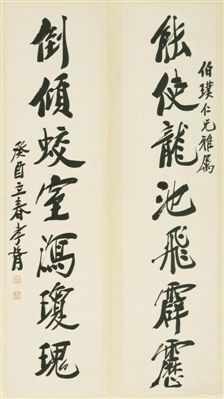 伯璞仁兄雅属
能使龍池飛霹靂
倒傾蛟室瀉瓊瑰
癸酉立春孝胥